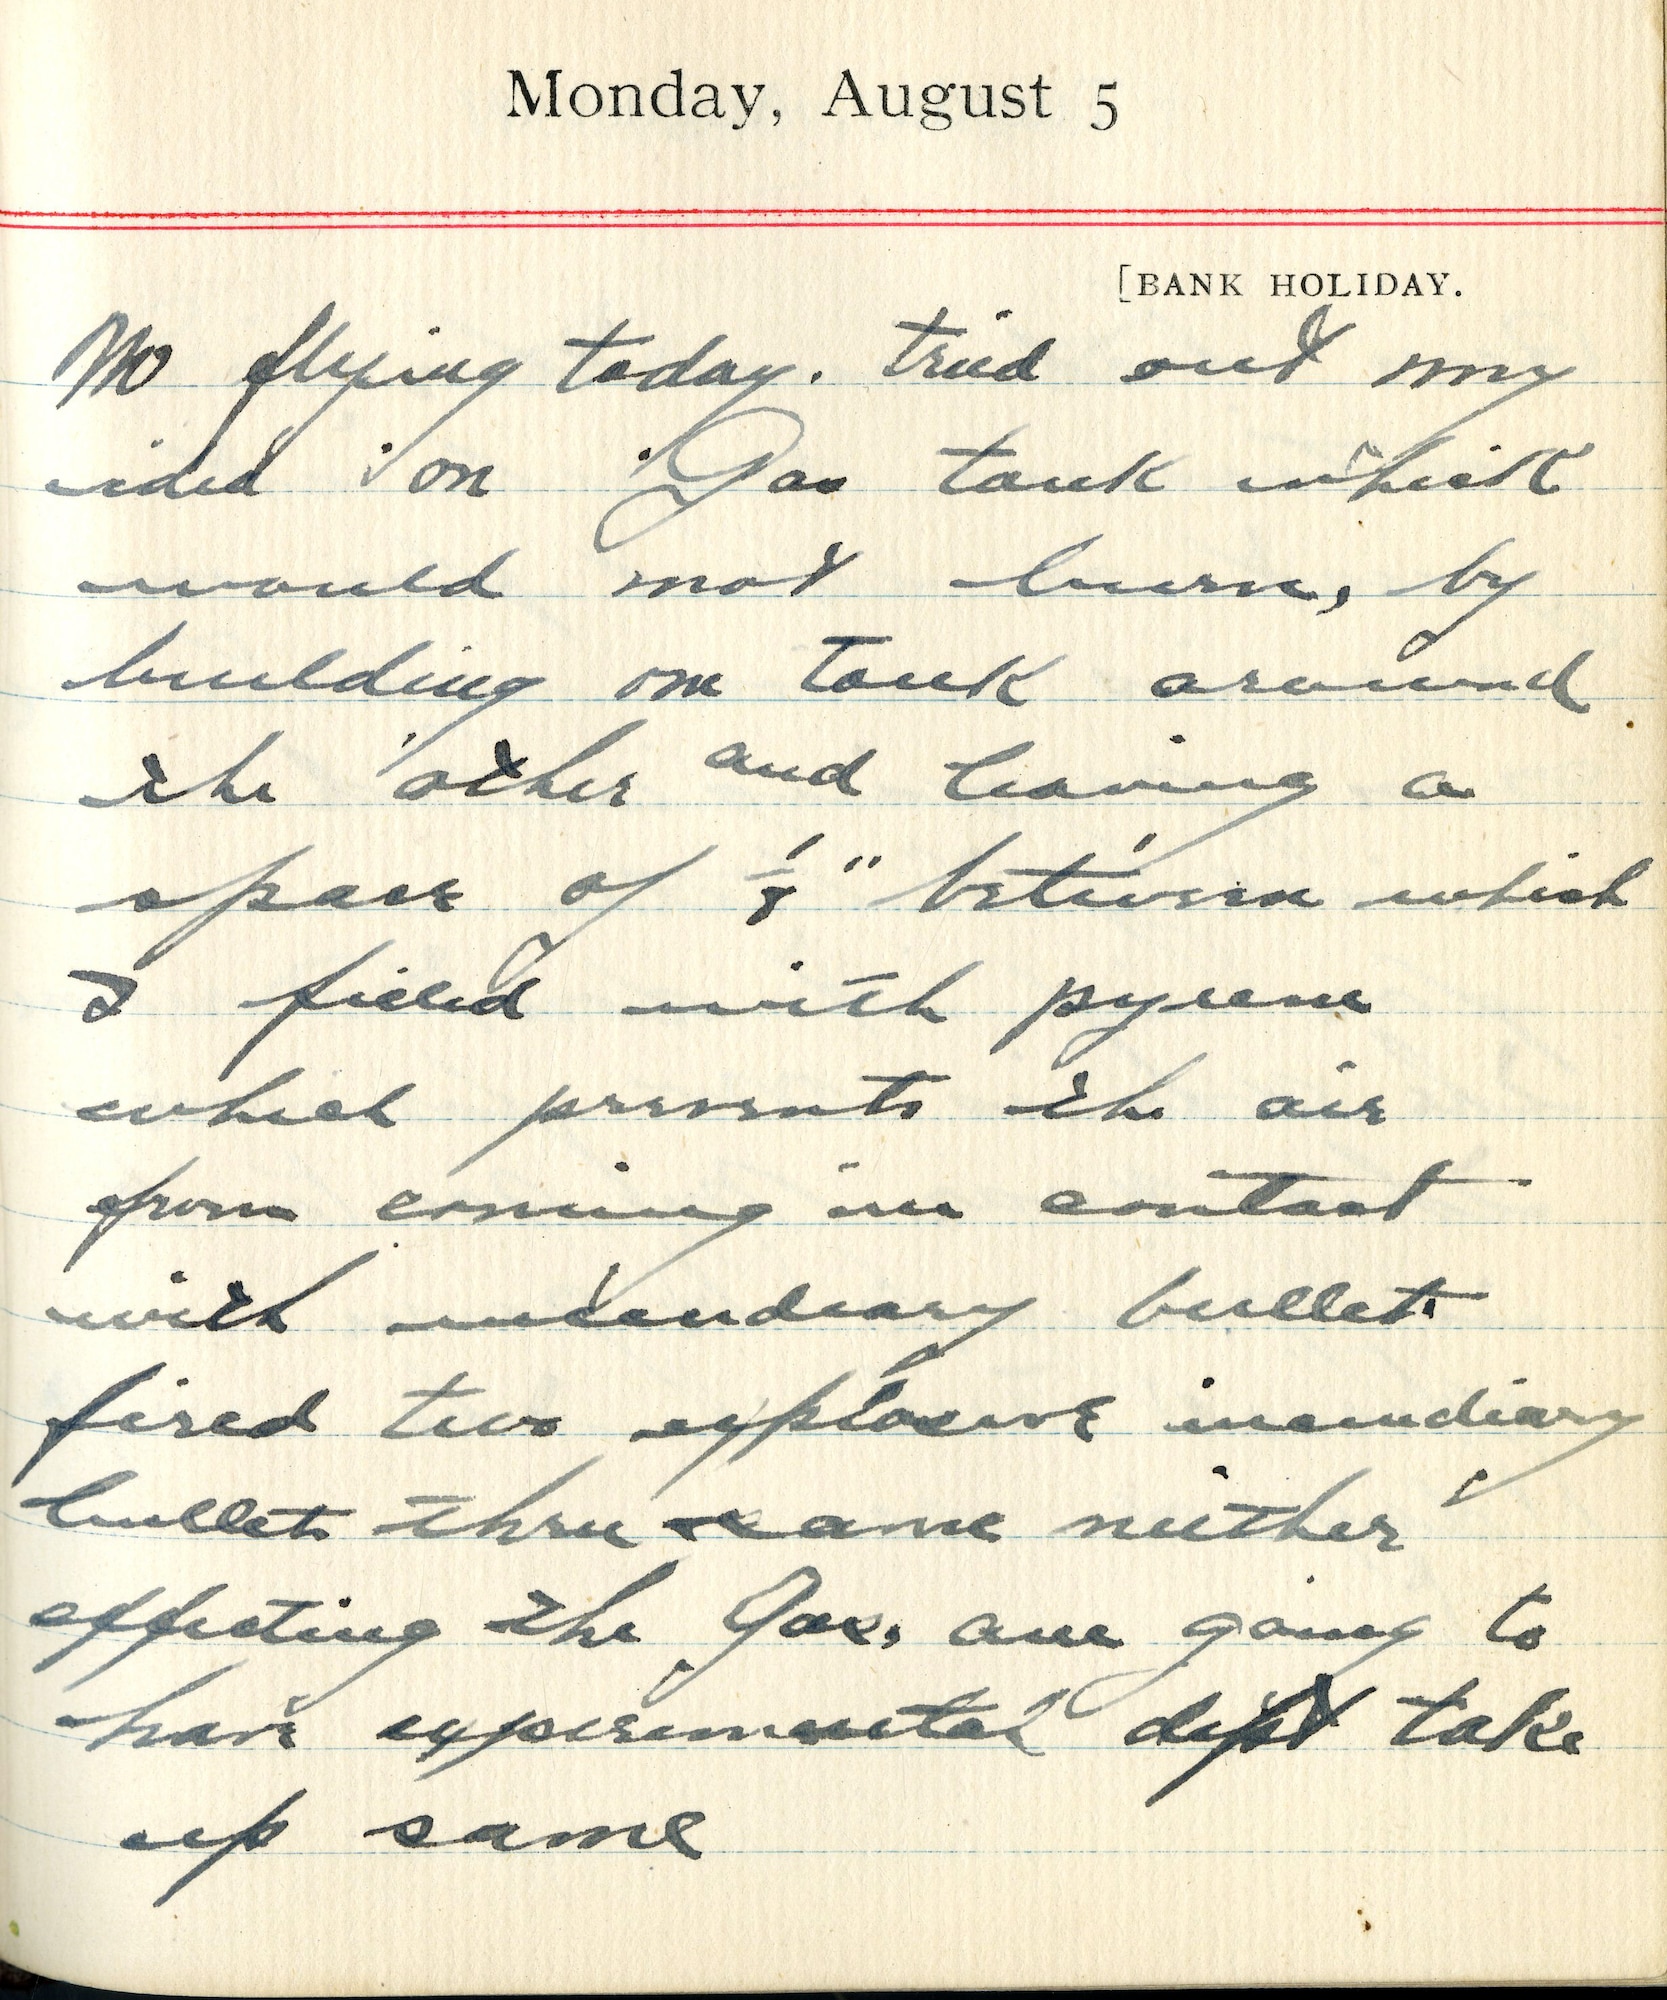 Monday, August 5
[BANK HOLIDAY.
No flying today. tried out my
idea on Gas tank which
would not burn, by
building one tank around
the other and leaving a
space of 1/8" between which
I filled with pyrene
which prevents the air
from coming in contact
with incendiary bullet.
fired two explosive incendiary
bullets thru same neither
effecting the Gas. are going to
have experimental dept take
up same